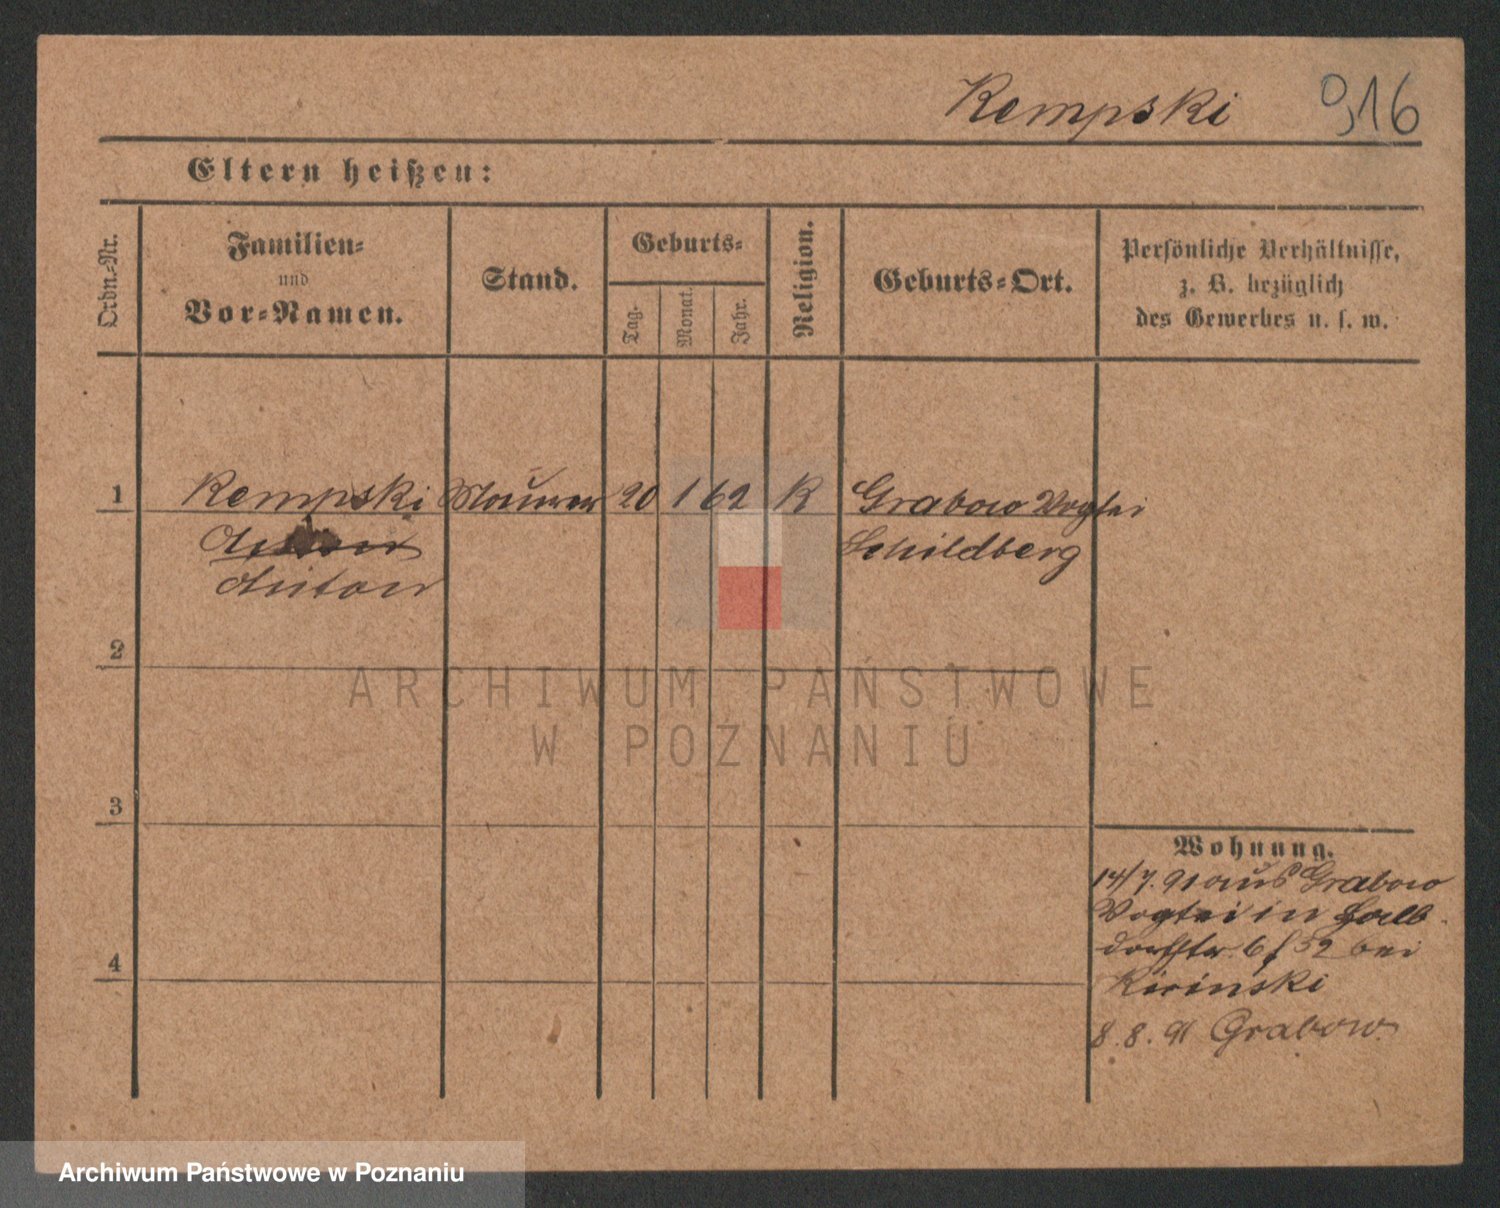 Kempski 916
Eltern heißen:
Ordn.-Nr.
Familien-
und
Vor-Namen.
Stand.
Geburts-
Tag.
Monat.
Jahr.
Religion.
Geburts-Ort.
Persönliche Verhältnisse,
z. B. bezüglich
des Gewerbes u. s. w.
1 Kempski Maurer 20 1 62 K Grabow Vogtei
Anton Schildberg
Anton
2
3
4
Wohnung.
14/7. 91 aus Grabow
Vogtei in Halb-
dorfstr. 6 f 52 bei
8. 8. 91 Grabow
ARCHIWUM PAŃSTWOWE
W POZNANIU
Archiwum Państwowe w Poznaniu